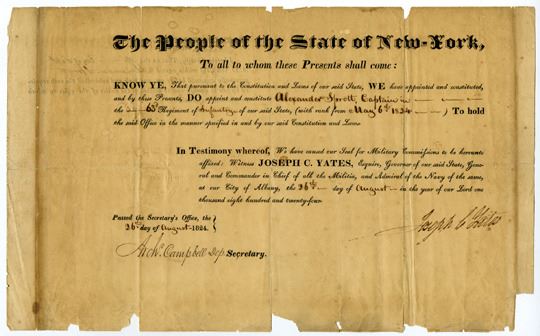 The People of the State of New-York,
To all to whom these Presents shall come:
KNOW YE, That pursuant to the Constitution and Laws of our said State, WE have appointed and constituted,
and by these Presents, DO appoint and constitute Alexander Sprott, Captain in
the 63d Regiment of Infantry of our said State, (with rank from May 6th 1824 ) To hold
the said Office in the manner specified in and by our said Constitution and Laws.
In Testimony whereof, We have caused our Seal for Military Commissions to be hereunto
affixed: Witness JOSEPH C. YATES, Esquire, Governor of our said State, Gene-
ral and Commander in Chief of all the Militia, and Admiral of the Navy of the same,
at our City of Albany, the 26th day of August in the year of our Lord one
thousand eight hundred and twenty-four.
Passed the Secretary's Office, the
26th day of August 1824.
Joseph C Yates
Archd. Campbell Dep Secretary.